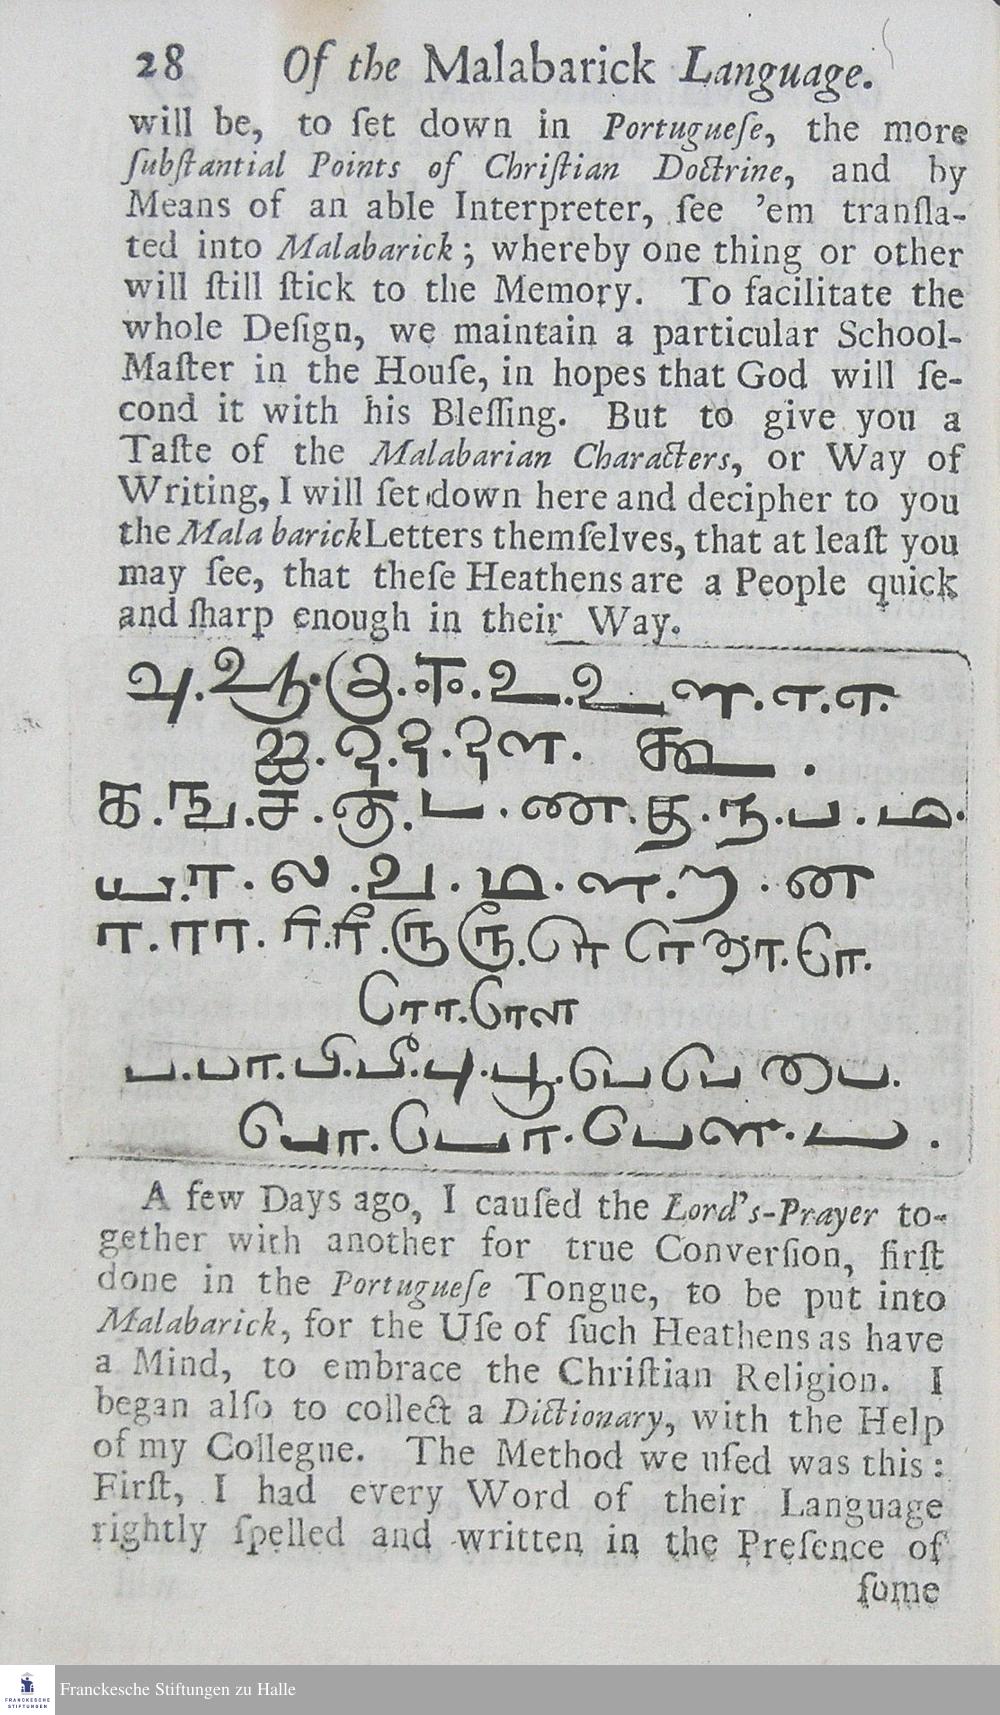 28 Of the Malabarick Language.
will be, to ſet down in Portugueſe, the more
ſubſtantial Points of Chriſtian Doctrine, and by
Means of an able Interpreter, ſee 'em tranſla-
ted into Malabarick; whereby one thing or other
will ſtill ſtick to the Memory. To facilitate the
whole Deſign, we maintain a particular School-
Maſter in the Houſe, in hopes that God will ſe-
cond it with his Bleſſing. But to give you a
Taſte of the Malabarian Characters, or Way of
Writing, I will ſet down here and decipher to you
the Mala barick Letters themſelves, that at leaſt you
may ſee, that theſe Heathens are a People quick
and ſharp enough in their Way.
க.ங.ச.கு.ட.ண.த.ந.ப.ம.
ய.ர.ல.வ.ழ.ள.ற.ன
ப.பா.பி.பீ.பு.பூ.பெ பெ பை.
பொ.பொ.பௌ.ப.
A few Days ago, I cauſed the Lord's-Prayer to-
gether with another for true Converſion, firſt
done in the Portugueſe Tongue, to be put into
Malabarick, for the Uſe of ſuch Heathens as have
a Mind, to embrace the Chriſtian Religion. I
began alſo to collect a Dictionary, with the Help
of my Collegue. The Method we uſed was this:
Firſt, I had every Word of their Language
rightly ſpelled and written in the Preſence of
ſome
FRANCKESCHE
STIFTUNGEN
Franckesche Stiftungen zu Halle